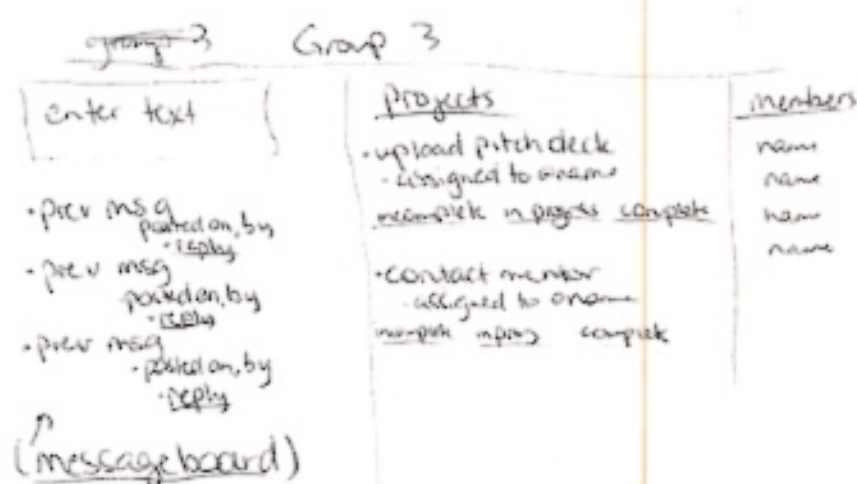 group 3 Group 3
enter text
• prev msg
posted on, by
• reply
• prev msg
posted on, by
• reply
• prev msg
• posted on, by
• reply
(messageboard)
projects
• upload pitch deck
- assigned to @name
incomplete in progress complete
• contact mentor
- assigned to @name
incomplete inprog complete
members
name
name
name
name